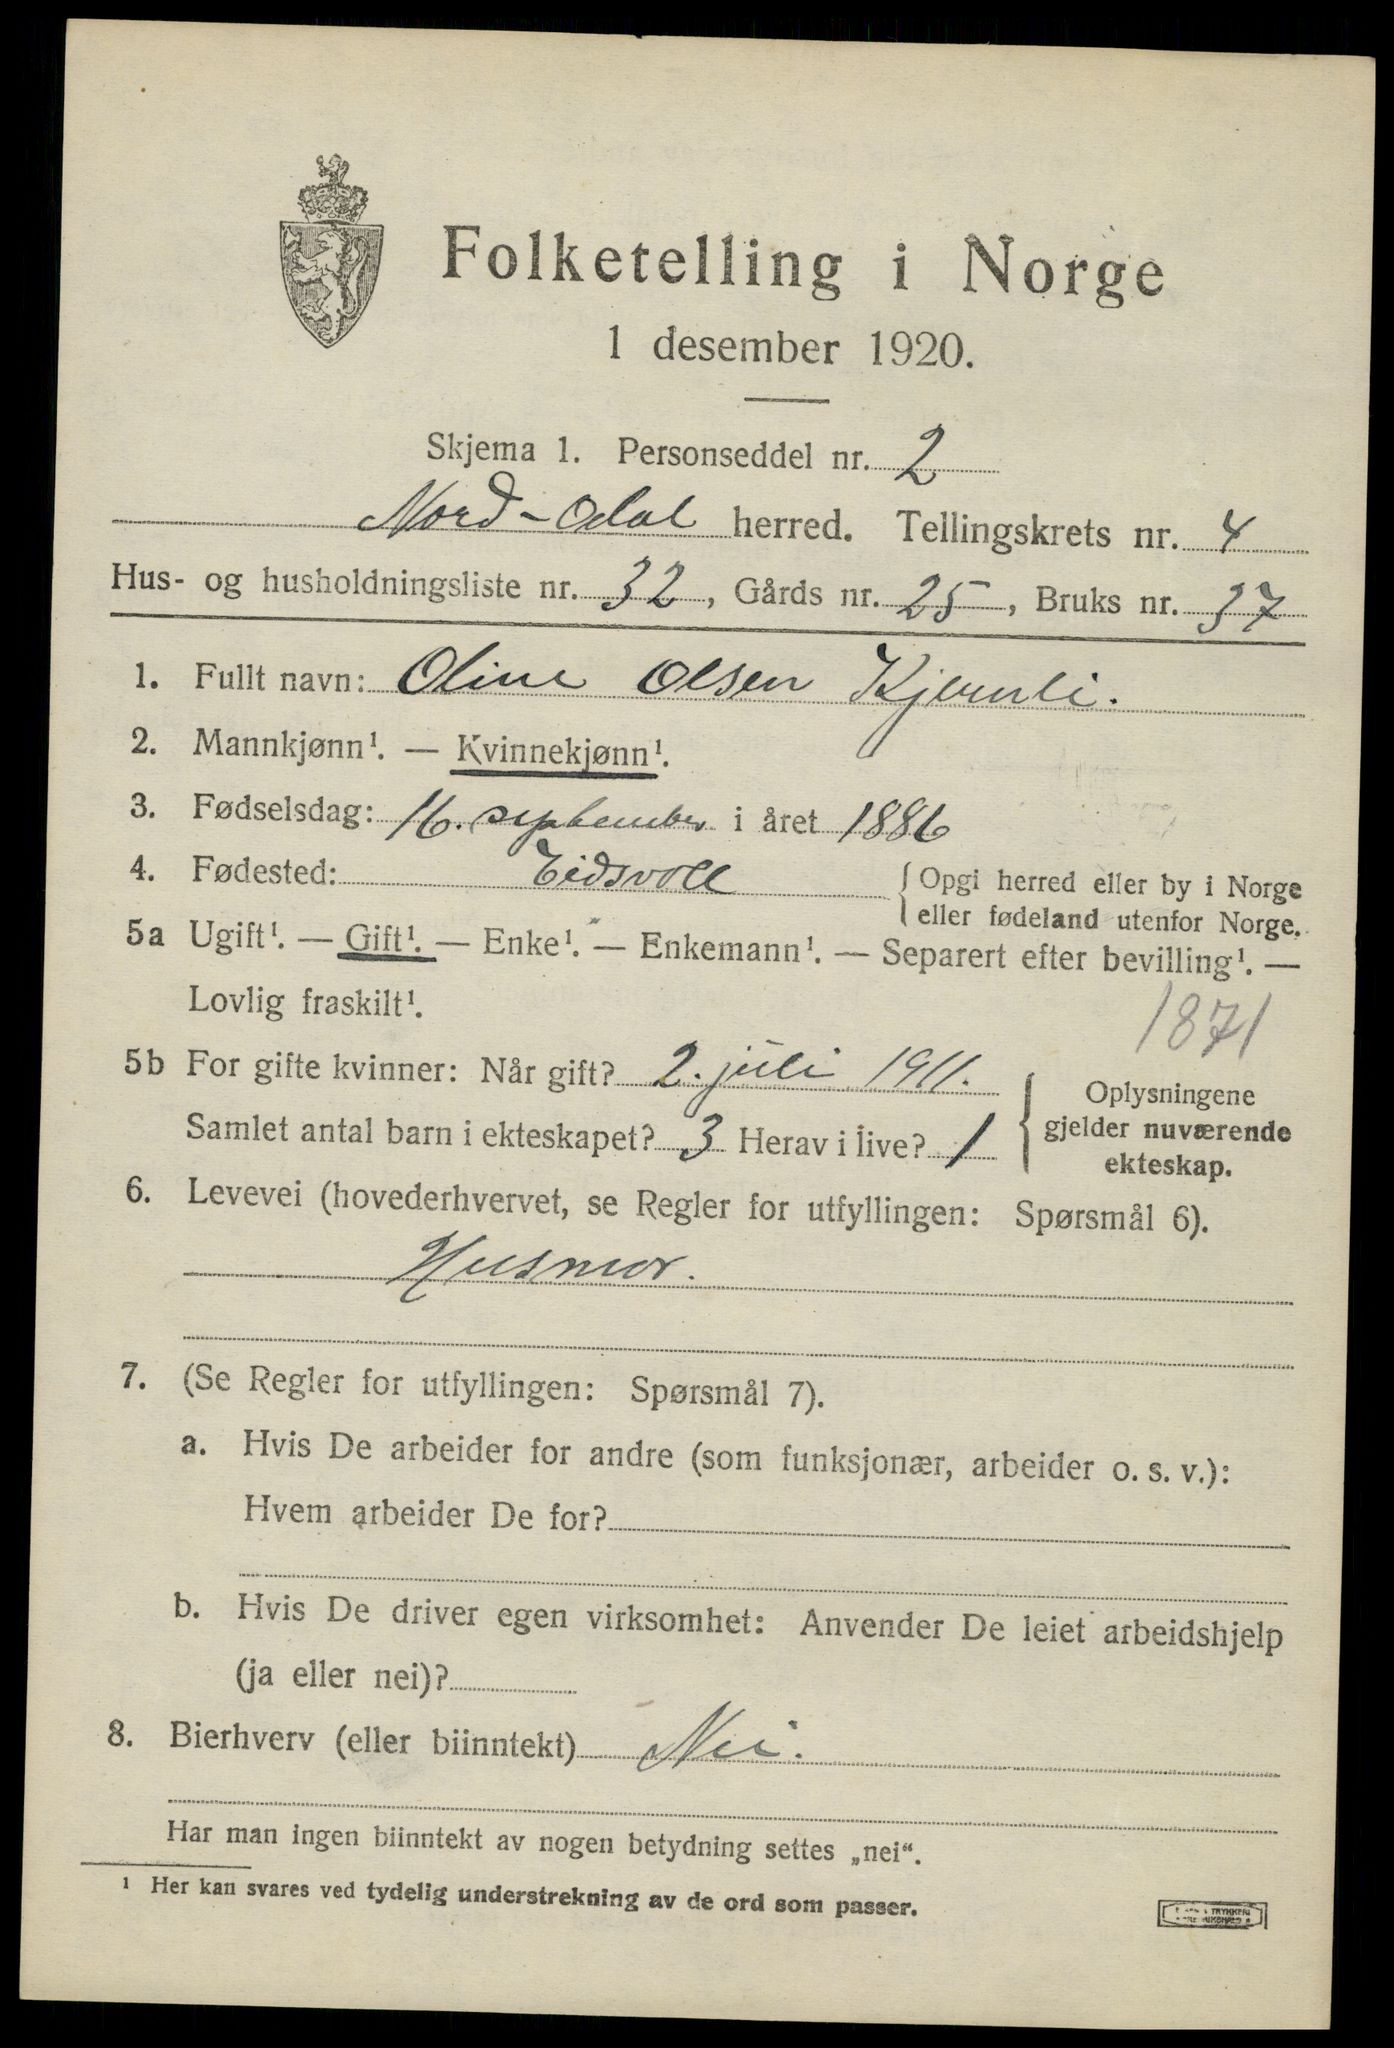 Folketelling i Norge
1 desember 1920.
Skjema 1. Personseddel nr. 2
Nord-Odal herred. Tellingskrets nr. 4
Hus- og husholdningsliste nr. 32, Gårds nr. 25, Bruks nr. 37
1. Fullt navn: Oline Olsen Kjernli.
2. Mannkjønn¹. — Kvinnekjønn¹.
3. Fødselsdag: 16. september i året 1886
4. Fødested: Eidsvoll { Opgi herred eller by i Norge
eller fødeland utenfor Norge.
5a Ugift¹. — Gift¹. — Enke¹. — Enkemann¹. — Separert efter bevilling¹. —
Lovlig fraskilt¹.
1871
5b For gifte kvinner: Når gift? 2. juli 1911.
Samlet antal barn i ekteskapet? 3 Herav i live? 1
Oplysningene
gjelder nuværende
ekteskap.
6. Levevei (hovederhvervet, se Regler for utfyllingen: Spørsmål 6).
Husmor.
7. (Se Regler for utfyllingen: Spørsmål 7).
a. Hvis De arbeider for andre (som funksjonær, arbeider o. s. v.):
Hvem arbeider De for?
b. Hvis De driver egen virksomhet: Anvender De leiet arbeidshjelp
(ja eller nei)?
8. Bierhverv (eller biinntekt) Nei.
Har man ingen biinntekt av nogen betydning settes „nei“.
¹ Her kan svares ved tydelig understrekning av de ord som passer.